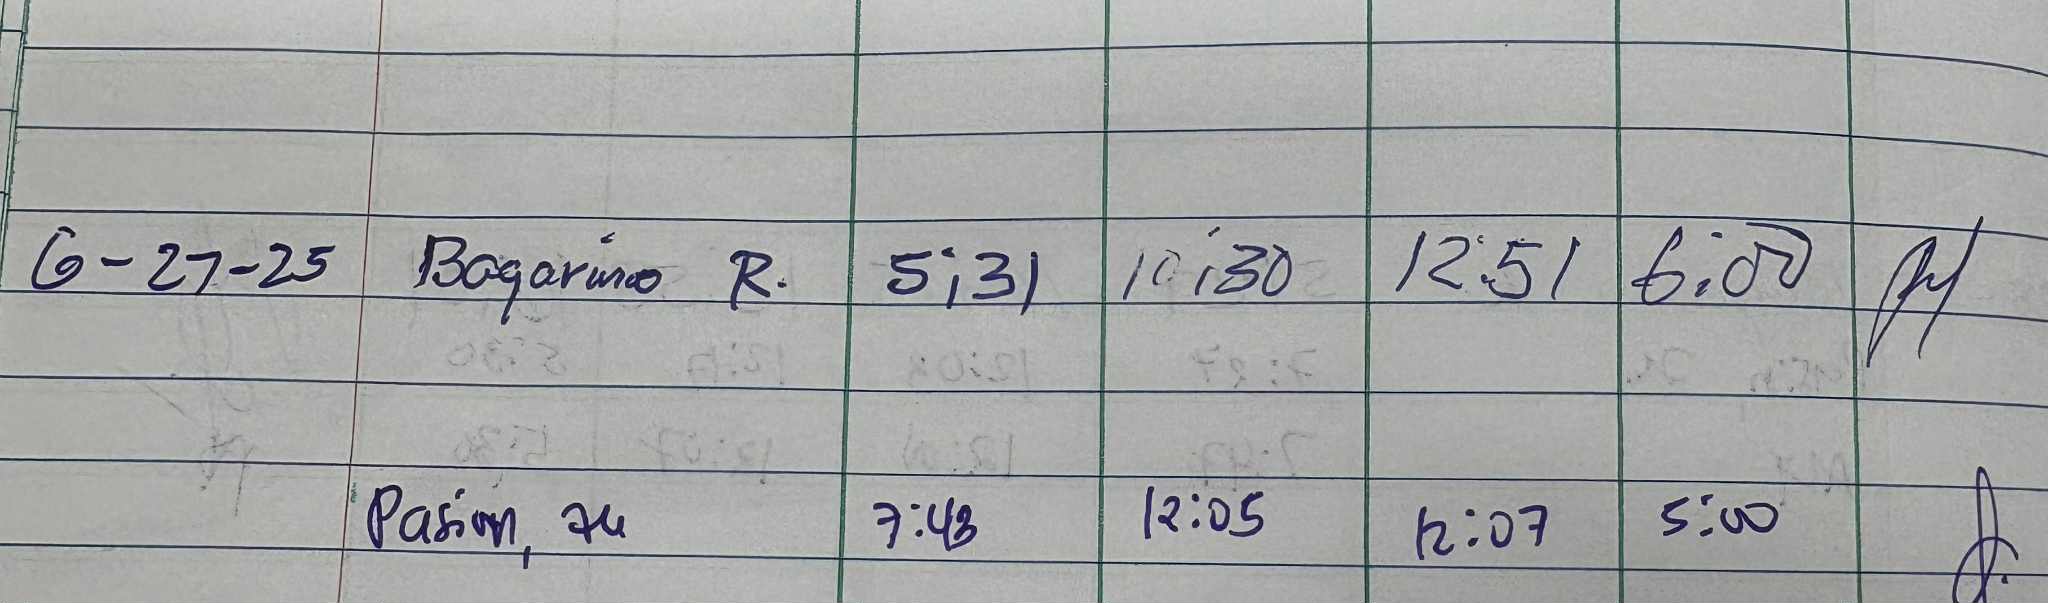 6-27-25 Bagarino R. 5:31 10:30 12:51 6:00
Pasion, 7:43 12:05 12:07 5:00